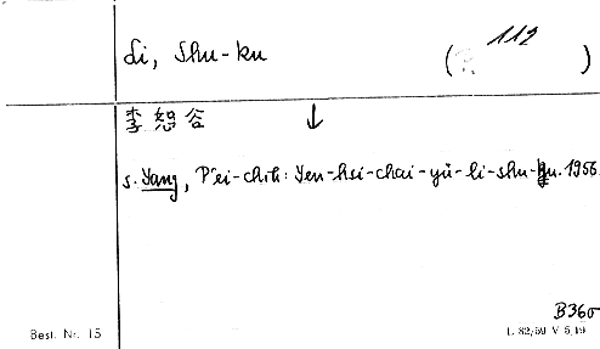 Li, Shu-ku ( 112 )
李恕谷 ↓
s. Yang, P'ei-chih: Yen-hsi-chai-yü-li-shu-ku. 1956.
B360
Best. Nr. 15
L 82/59 V 5,19